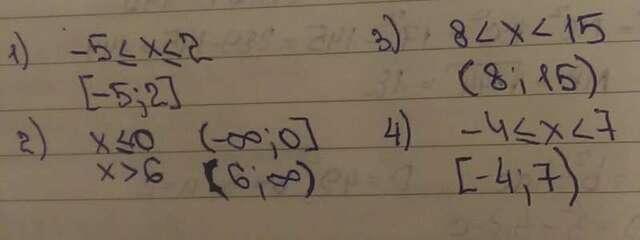 1) -5≤x≤2
[-5;2]
2) x≤0 (-∞;0]
x>6 (6;∞)
3) 8<x<15
(8;15)
4) -4≤x<7
[-4;7)